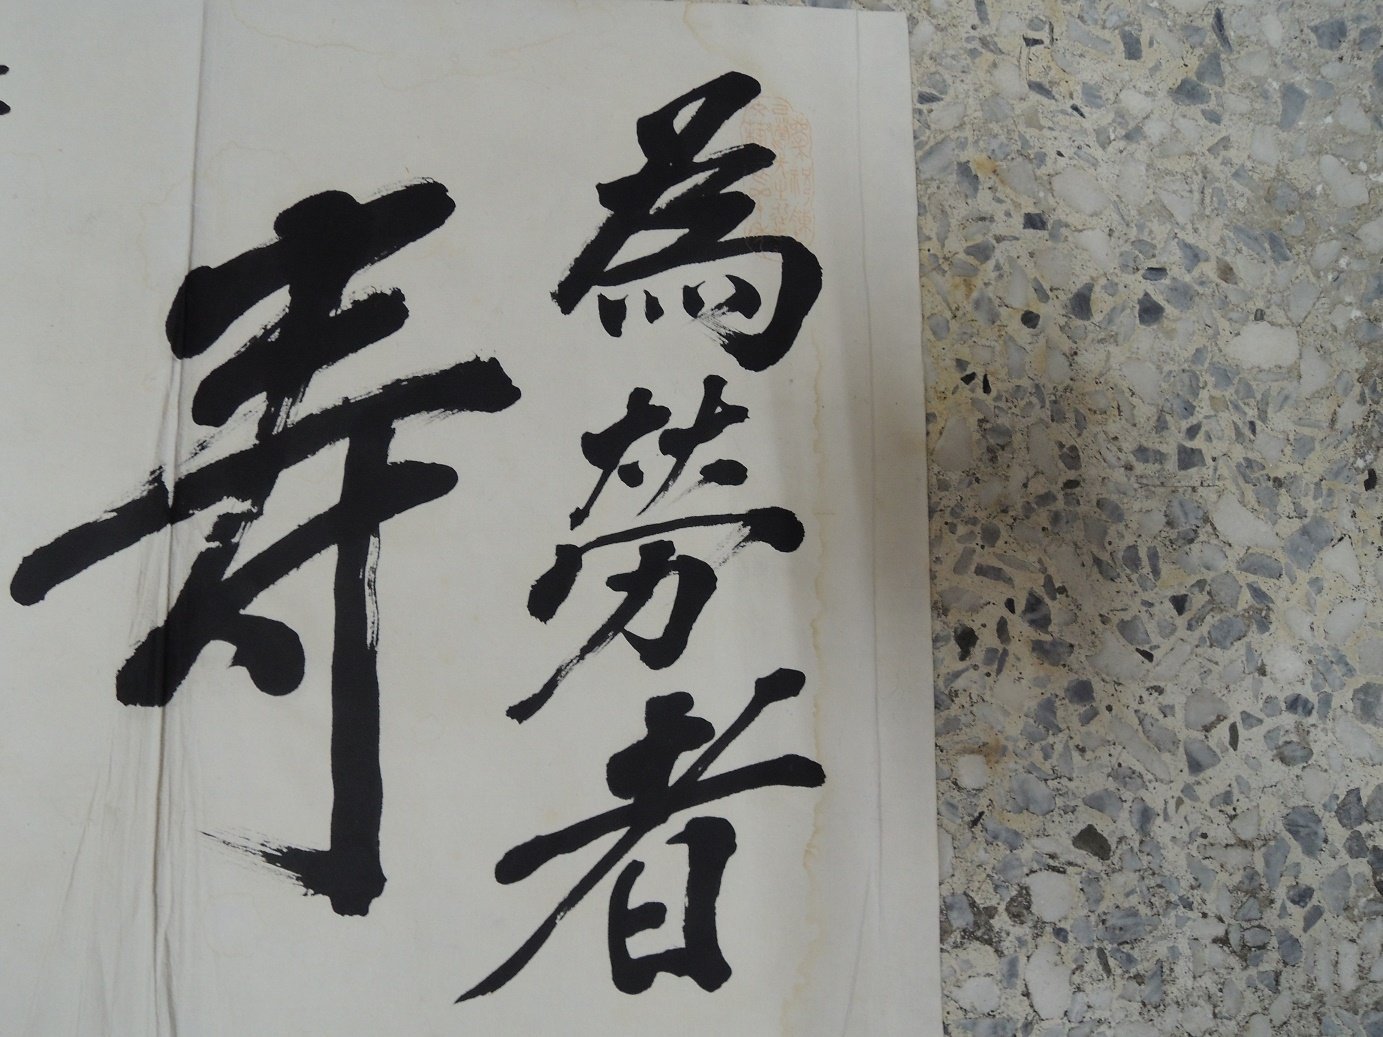 為勞者
壽